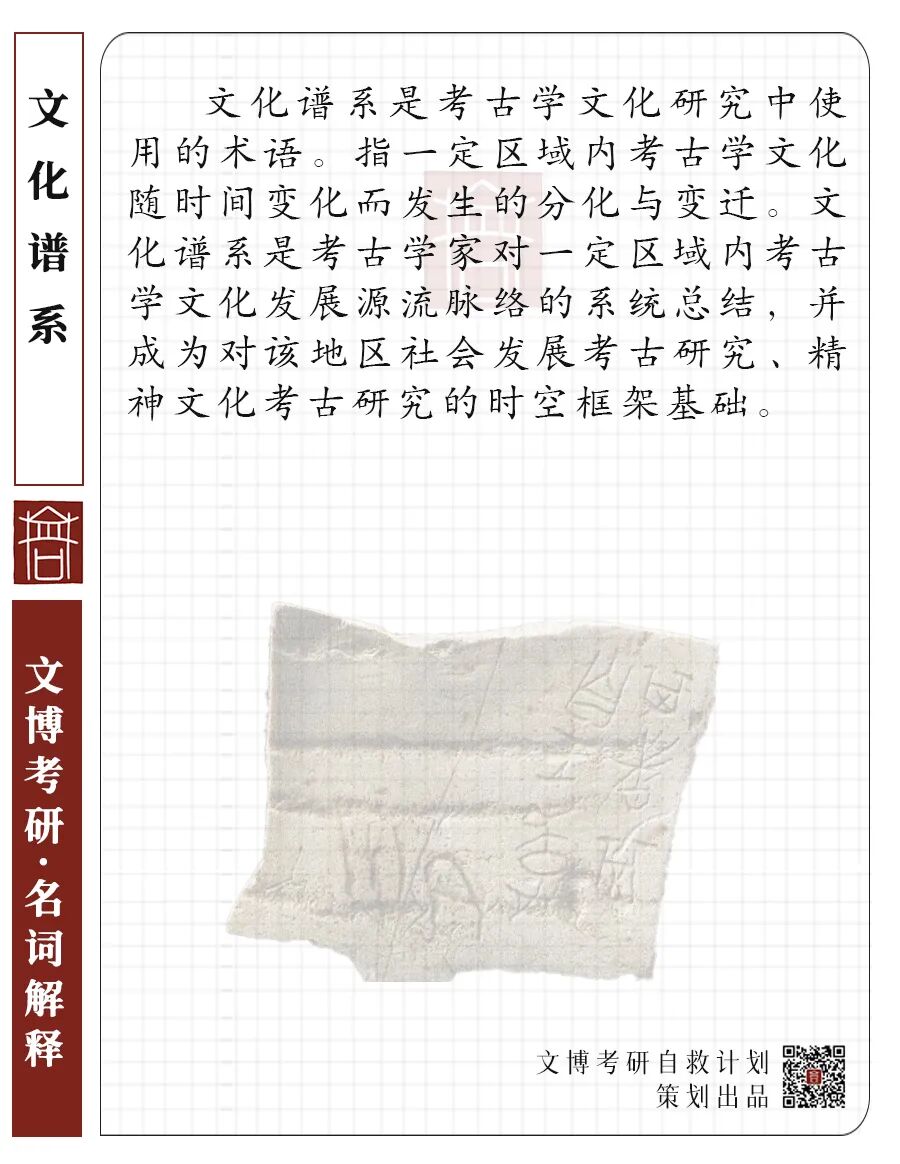 文化谱系
文化谱系是考古学文化研究中使
用的术语。指一定区域内考古学文化
随时间变化而发生的分化与变迁。文
化谱系是考古学家对一定区域内考古
学文化发展源流脉络的系统总结，并
成为对该地区社会发展考古研究、精
神文化考古研究的时空框架基础。
文博考研·名词解释
文博考研自救计划
策划出品